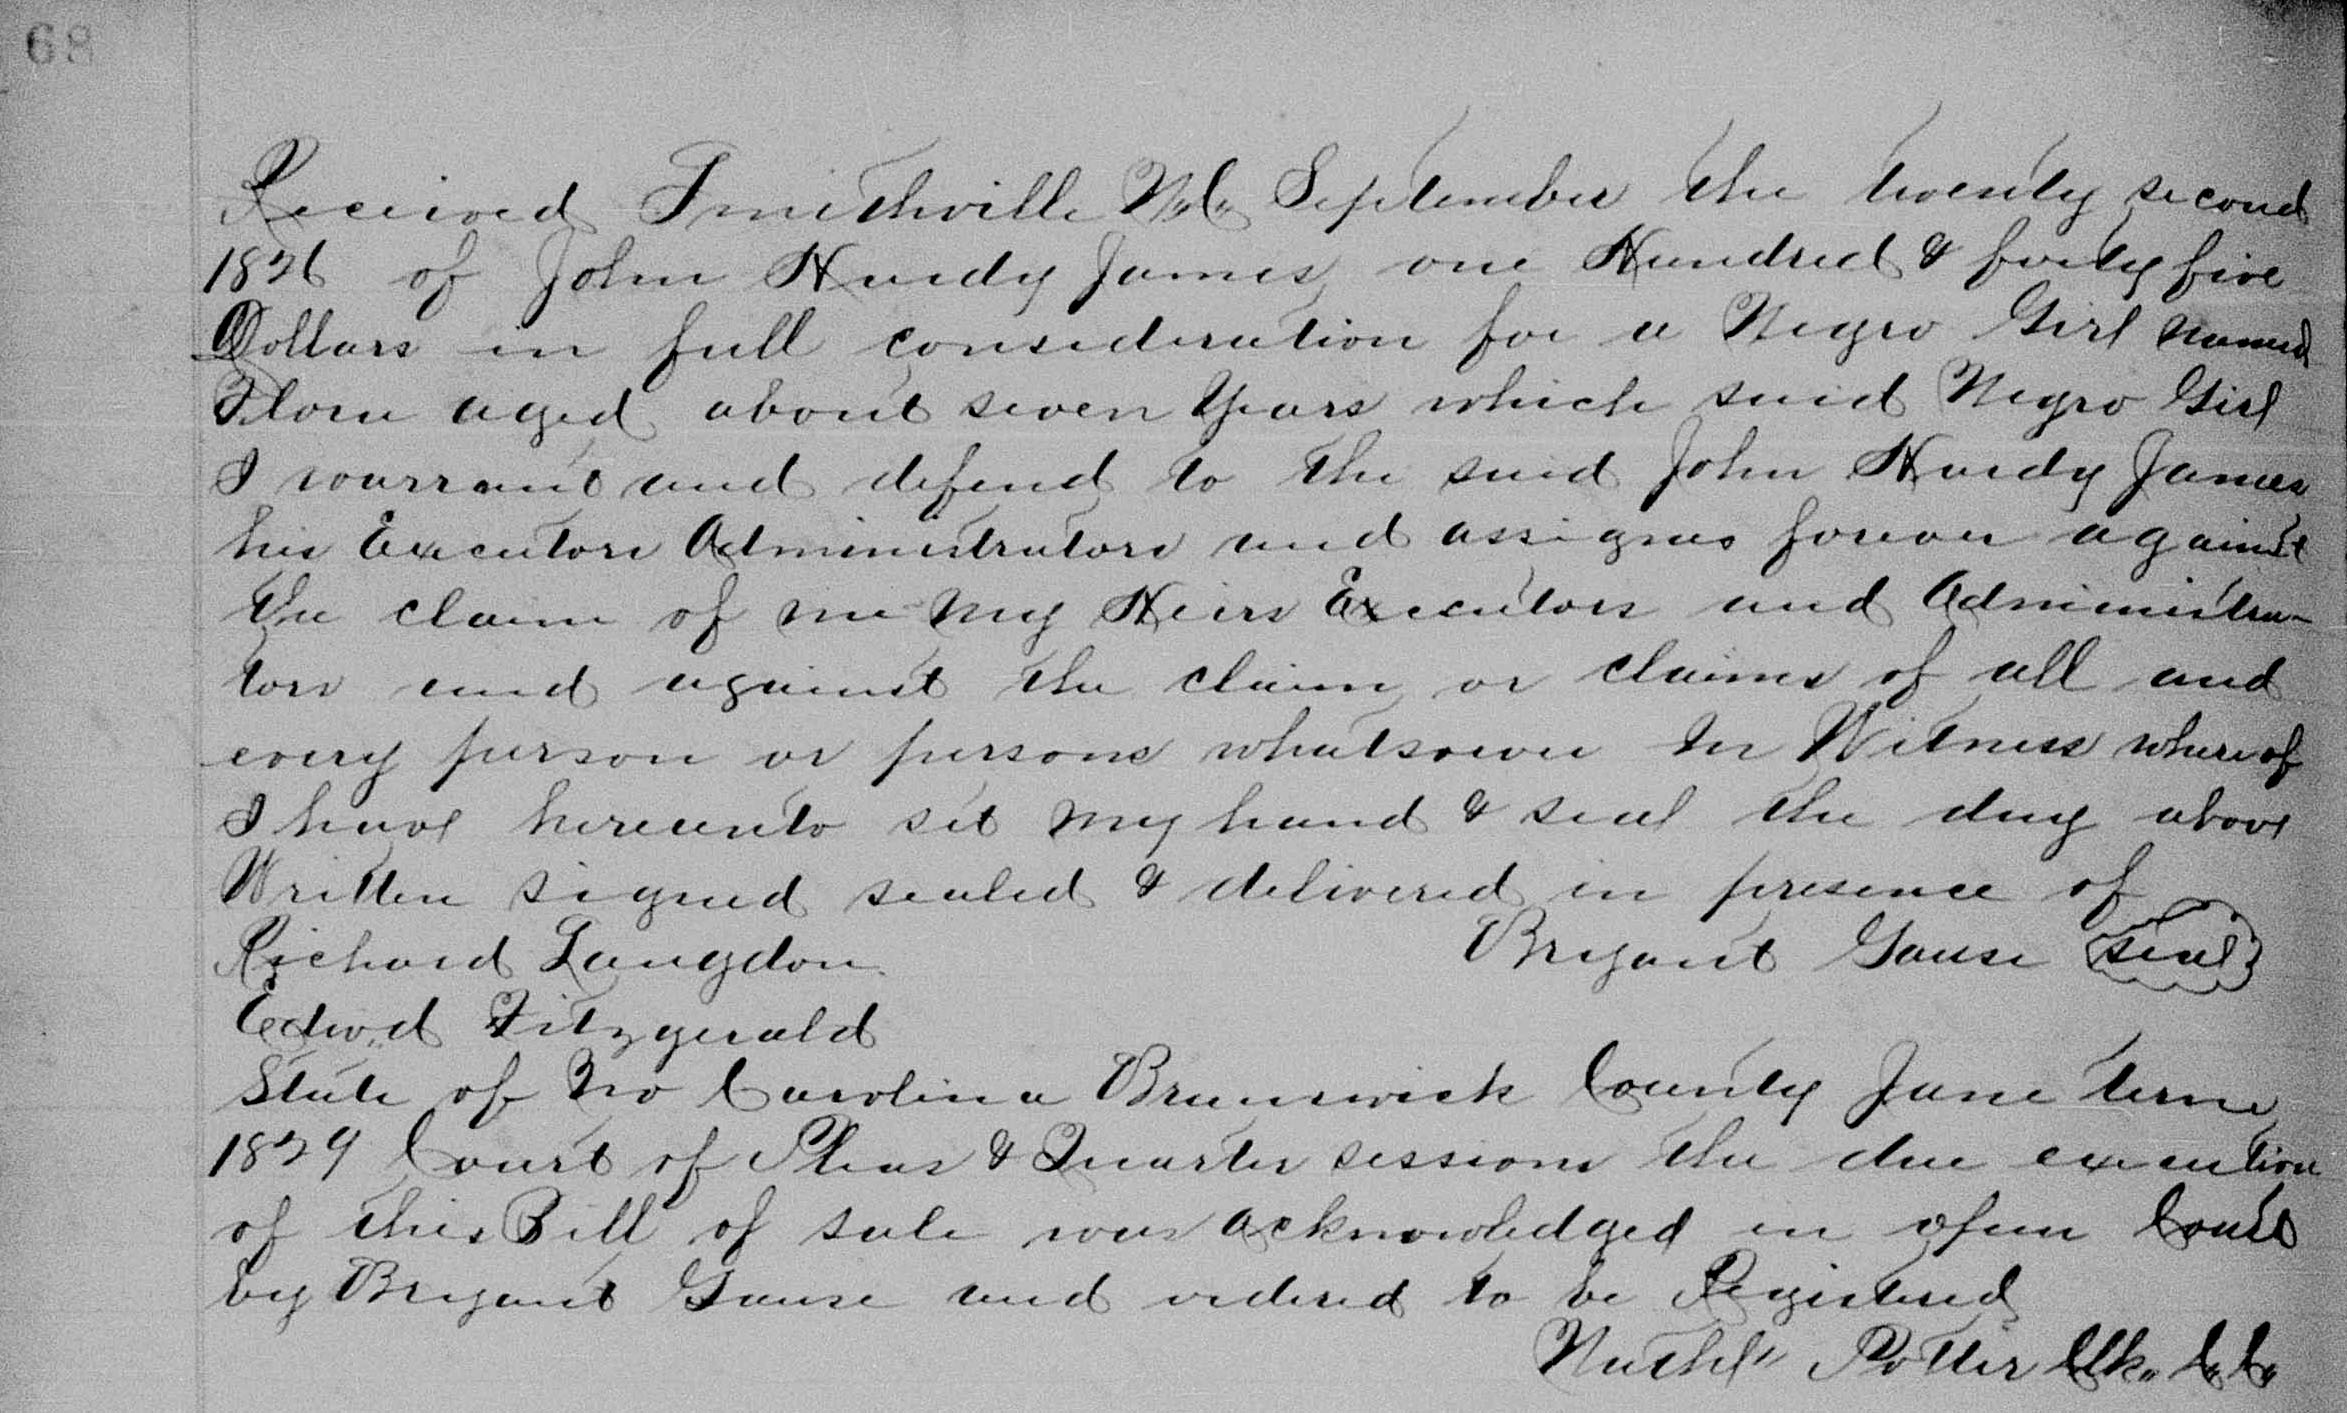 68
Received Smithville N.C. September the twenty second
1826 of John Hurdy James one Hundred & forty five
Dollars in full consideration for a Negro Girl named
Flora aged about seven Years which said Negro Girl
I warrant and defend to the said John Hurdy James
his Executors Administrators and assigns forever against
the claim of me my Heirs Executors and Administra-
tors and against the claim or claims of all and
every person or persons whatsoever In Witness whereof
I have hereunto set my hand & seal the day above
Written signed sealed & delivered in presence of
Richard Langdon Bryant Gause seal
Edwd Fitzgerald
State of No Carolina Brunswick County June term
1829 Court of Pleas & Quarter sessions the due execution
of this Bill of sale was acknowledged in open Court
by Bryant Gause and ordered to be Registered
Nathl" Potter Clk. C.C.